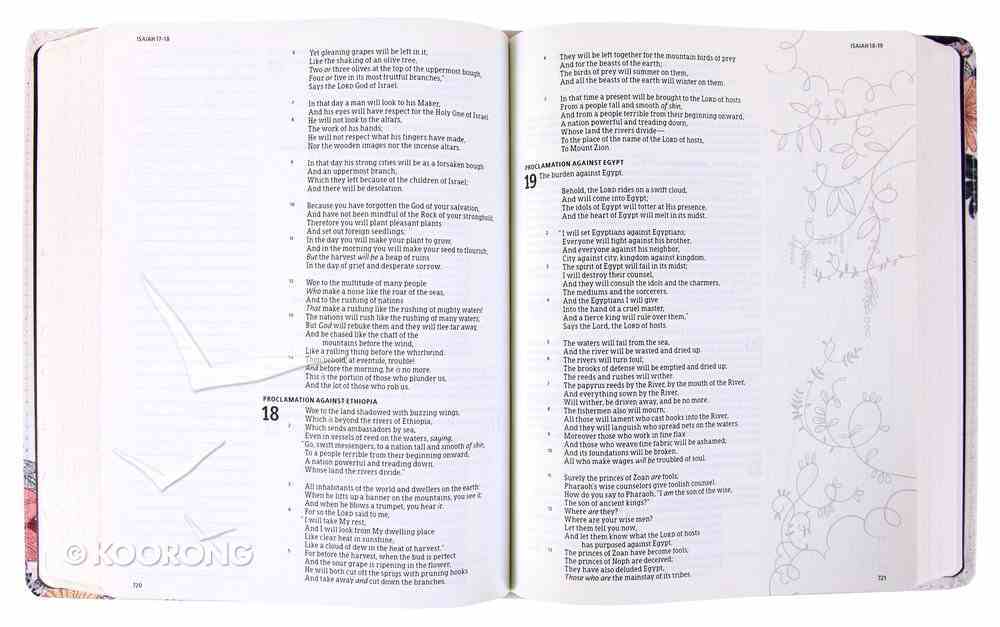 ISAIAH 17-18
6 Yet gleaning grapes will be left in it,
Like the shaking of an olive tree,
Two or three olives at the top of the uppermost bough,
Four or five in its most fruitful branches,"
Says the LORD God of Israel.
7 In that day a man will look to his Maker,
And his eyes will have respect for the Holy One of Israel.
8 He will not look to the altars,
The work of his hands;
He will not respect what his fingers have made,
Nor the wooden images nor the incense altars.
9 In that day his strong cities will be as a forsaken bough
And an uppermost branch,
Which they left because of the children of Israel;
And there will be desolation.
10 Because you have forgotten the God of your salvation,
And have not been mindful of the Rock of your stronghold,
Therefore you will plant pleasant plants
And set out foreign seedlings;
11 In the day you will make your plant to grow,
And in the morning you will make your seed to flourish;
But the harvest will be a heap of ruins
In the day of grief and desperate sorrow.
12 Woe to the multitude of many people
Who make a noise like the roar of the seas,
And to the rushing of nations
That make a rushing like the rushing of mighty waters!
13 The nations will rush like the rushing of many waters;
But God will rebuke them and they will flee far away,
And be chased like the chaff of the
mountains before the wind,
Like a rolling thing before the whirlwind.
14 Then behold, at eventide, trouble!
And before the morning, he is no more.
This is the portion of those who plunder us,
And the lot of those who rob us.
PROCLAMATION AGAINST ETHIOPIA
18 Woe to the land shadowed with buzzing wings,
Which is beyond the rivers of Ethiopia,
2 Which sends ambassadors by sea,
Even in vessels of reed on the waters, saying,
"Go, swift messengers, to a nation tall and smooth of skin,
To a people terrible from their beginning onward,
A nation powerful and treading down,
Whose land the rivers divide."
3 All inhabitants of the world and dwellers on the earth:
When he lifts up a banner on the mountains, you see it;
And when he blows a trumpet, you hear it.
4 For so the LORD said to me,
"I will take My rest,
And I will look from My dwelling place
Like clear heat in sunshine,
Like a cloud of dew in the heat of harvest."
5 For before the harvest, when the bud is perfect
And the sour grape is ripening in the flower,
He will both cut off the sprigs with pruning hooks
And take away and cut down the branches.
720
© KOORONG
ISAIAH 18-19
6 They will be left together for the mountain birds of prey
And for the beasts of the earth;
The birds of prey will summer on them,
And all the beasts of the earth will winter on them.
7 In that time a present will be brought to the LORD of hosts
From a people tall and smooth of skin,
And from a people terrible from their beginning onward,
A nation powerful and treading down,
Whose land the rivers divide—
To the place of the name of the LORD of hosts,
To Mount Zion.
PROCLAMATION AGAINST EGYPT
19 The burden against Egypt.
Behold, the LORD rides on a swift cloud,
And will come into Egypt;
The idols of Egypt will totter at His presence,
And the heart of Egypt will melt in its midst.
2 "I will set Egyptians against Egyptians;
Everyone will fight against his brother,
And everyone against his neighbor,
City against city, kingdom against kingdom.
3 The spirit of Egypt will fail in its midst;
I will destroy their counsel,
And they will consult the idols and the charmers,
The mediums and the sorcerers.
4 And the Egyptians I will give
Into the hand of a cruel master,
And a fierce king will rule over them,"
Says the Lord, the LORD of hosts.
5 The waters will fail from the sea,
And the river will be wasted and dried up.
6 The rivers will turn foul;
The brooks of defense will be emptied and dried up;
The reeds and rushes will wither.
7 The papyrus reeds by the River, by the mouth of the River,
And everything sown by the River,
Will wither, be driven away, and be no more.
8 The fishermen also will mourn;
All those will lament who cast hooks into the River,
And they will languish who spread nets on the waters.
9 Moreover those who work in fine flax
And those who weave fine fabric will be ashamed;
10 And its foundations will be broken.
All who make wages will be troubled of soul.
11 Surely the princes of Zoan are fools;
Pharaoh's wise counselors give foolish counsel.
How do you say to Pharaoh, "I am the son of the wise,
The son of ancient kings?"
12 Where are they?
Where are your wise men?
Let them tell you now,
And let them know what the LORD of hosts
has purposed against Egypt.
13 The princes of Zoan have become fools;
The princes of Noph are deceived;
They have also deluded Egypt,
Those who are the mainstay of its tribes.
721